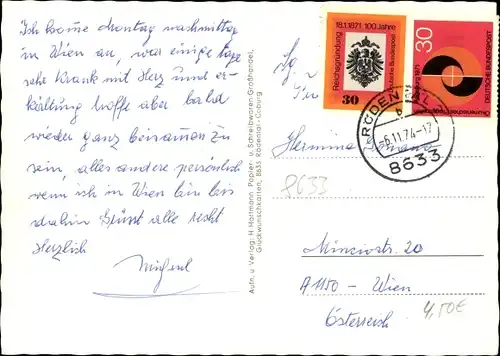 Ich komme Montag nachmittag
in Wien an, war einige tage
sehr Krank mit Herz und er-
kältung hoffe aber bald
wieder ganz beisamen zu
sein, alles andere persönlich
wenn ich in Wien bin bis
dahin Grüsst alle recht
Herzlich
Aufn. u. Verlag: H. Hartmann, Papier- u. Schreibwaren Großhandel,
Glückwunschkarten, 8635 Rödental-Coburg
Reichsgründung 18.1.1871 100 Jahre
Deutsche Bundespost
30
30
DEUTSCHE BUNDESPOST
RÖDENTAL
b
-6.11.74-17
8633
Hermine
8633
Minciostr. 20
A1150 - Wien
Österreich
4,50€